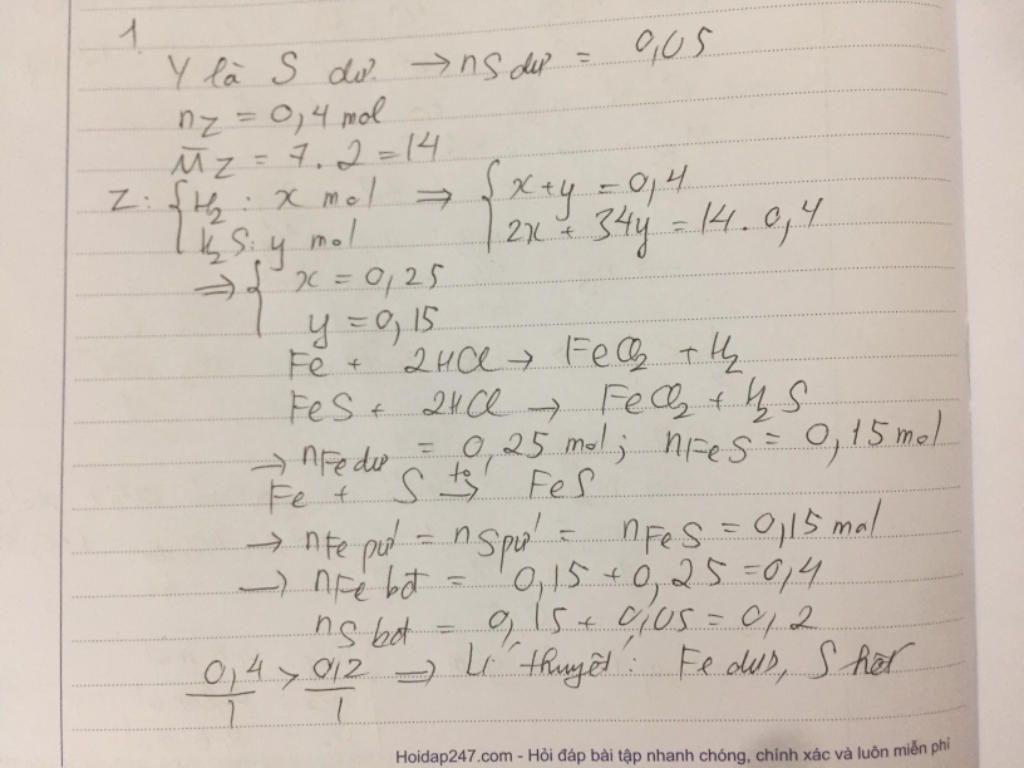 1.
Y là S dư → nS dư = 0,05
nZ = 0,4 mol
M̅Z = 7.2 = 14
Z: { H2 : x mol ⇒ { x + y = 0,4
H2S: y mol 2x + 34y = 14.0,4
⇒ { x = 0,25
y = 0,15
Fe + 2HCl → FeCl2 + H2
FeS + 2HCl → FeCl2 + H2S
→ nFe dư = 0,25 mol; nFeS = 0,15 mol
Fe + S –to→ FeS
→ nFe pư = nS pư = nFeS = 0,15 mol
→ nFe bđ = 0,15 + 0,25 = 0,4
nS bđ = 0,15 + 0,05 = 0,2
0,4/1 > 0,2/1 ⇒ Lí thuyết: Fe dư, S hết
Hoidap247.com - Hỏi đáp bài tập nhanh chóng, chính xác và luôn miễn phí